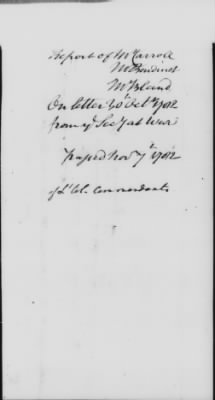 Report of Mr Carroll
Mr Boudinot
Mr Bland
On letter 30th Octr 1782
from ye Secy at War
Passed Novr 7th 1782
of Lt Col. Commandants